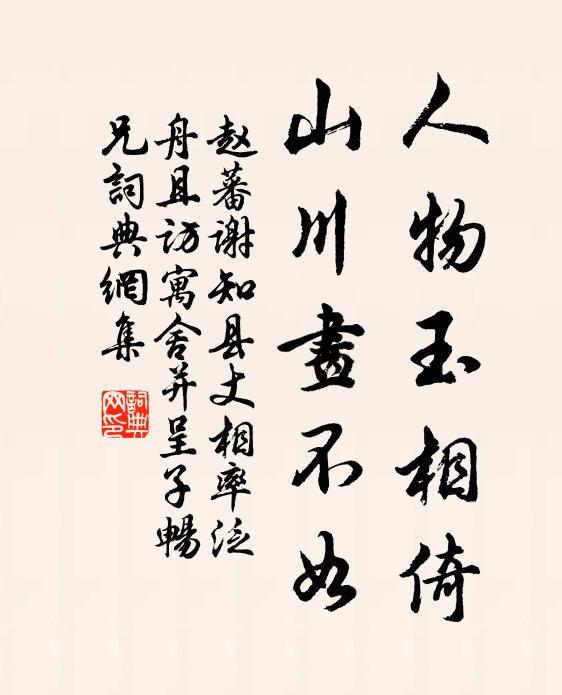 人物玉相倚
山川畫不如
赵蕃谢知县丈相率泛
舟且访寓舍并呈子暢
兄詞典網集
詞典
网印